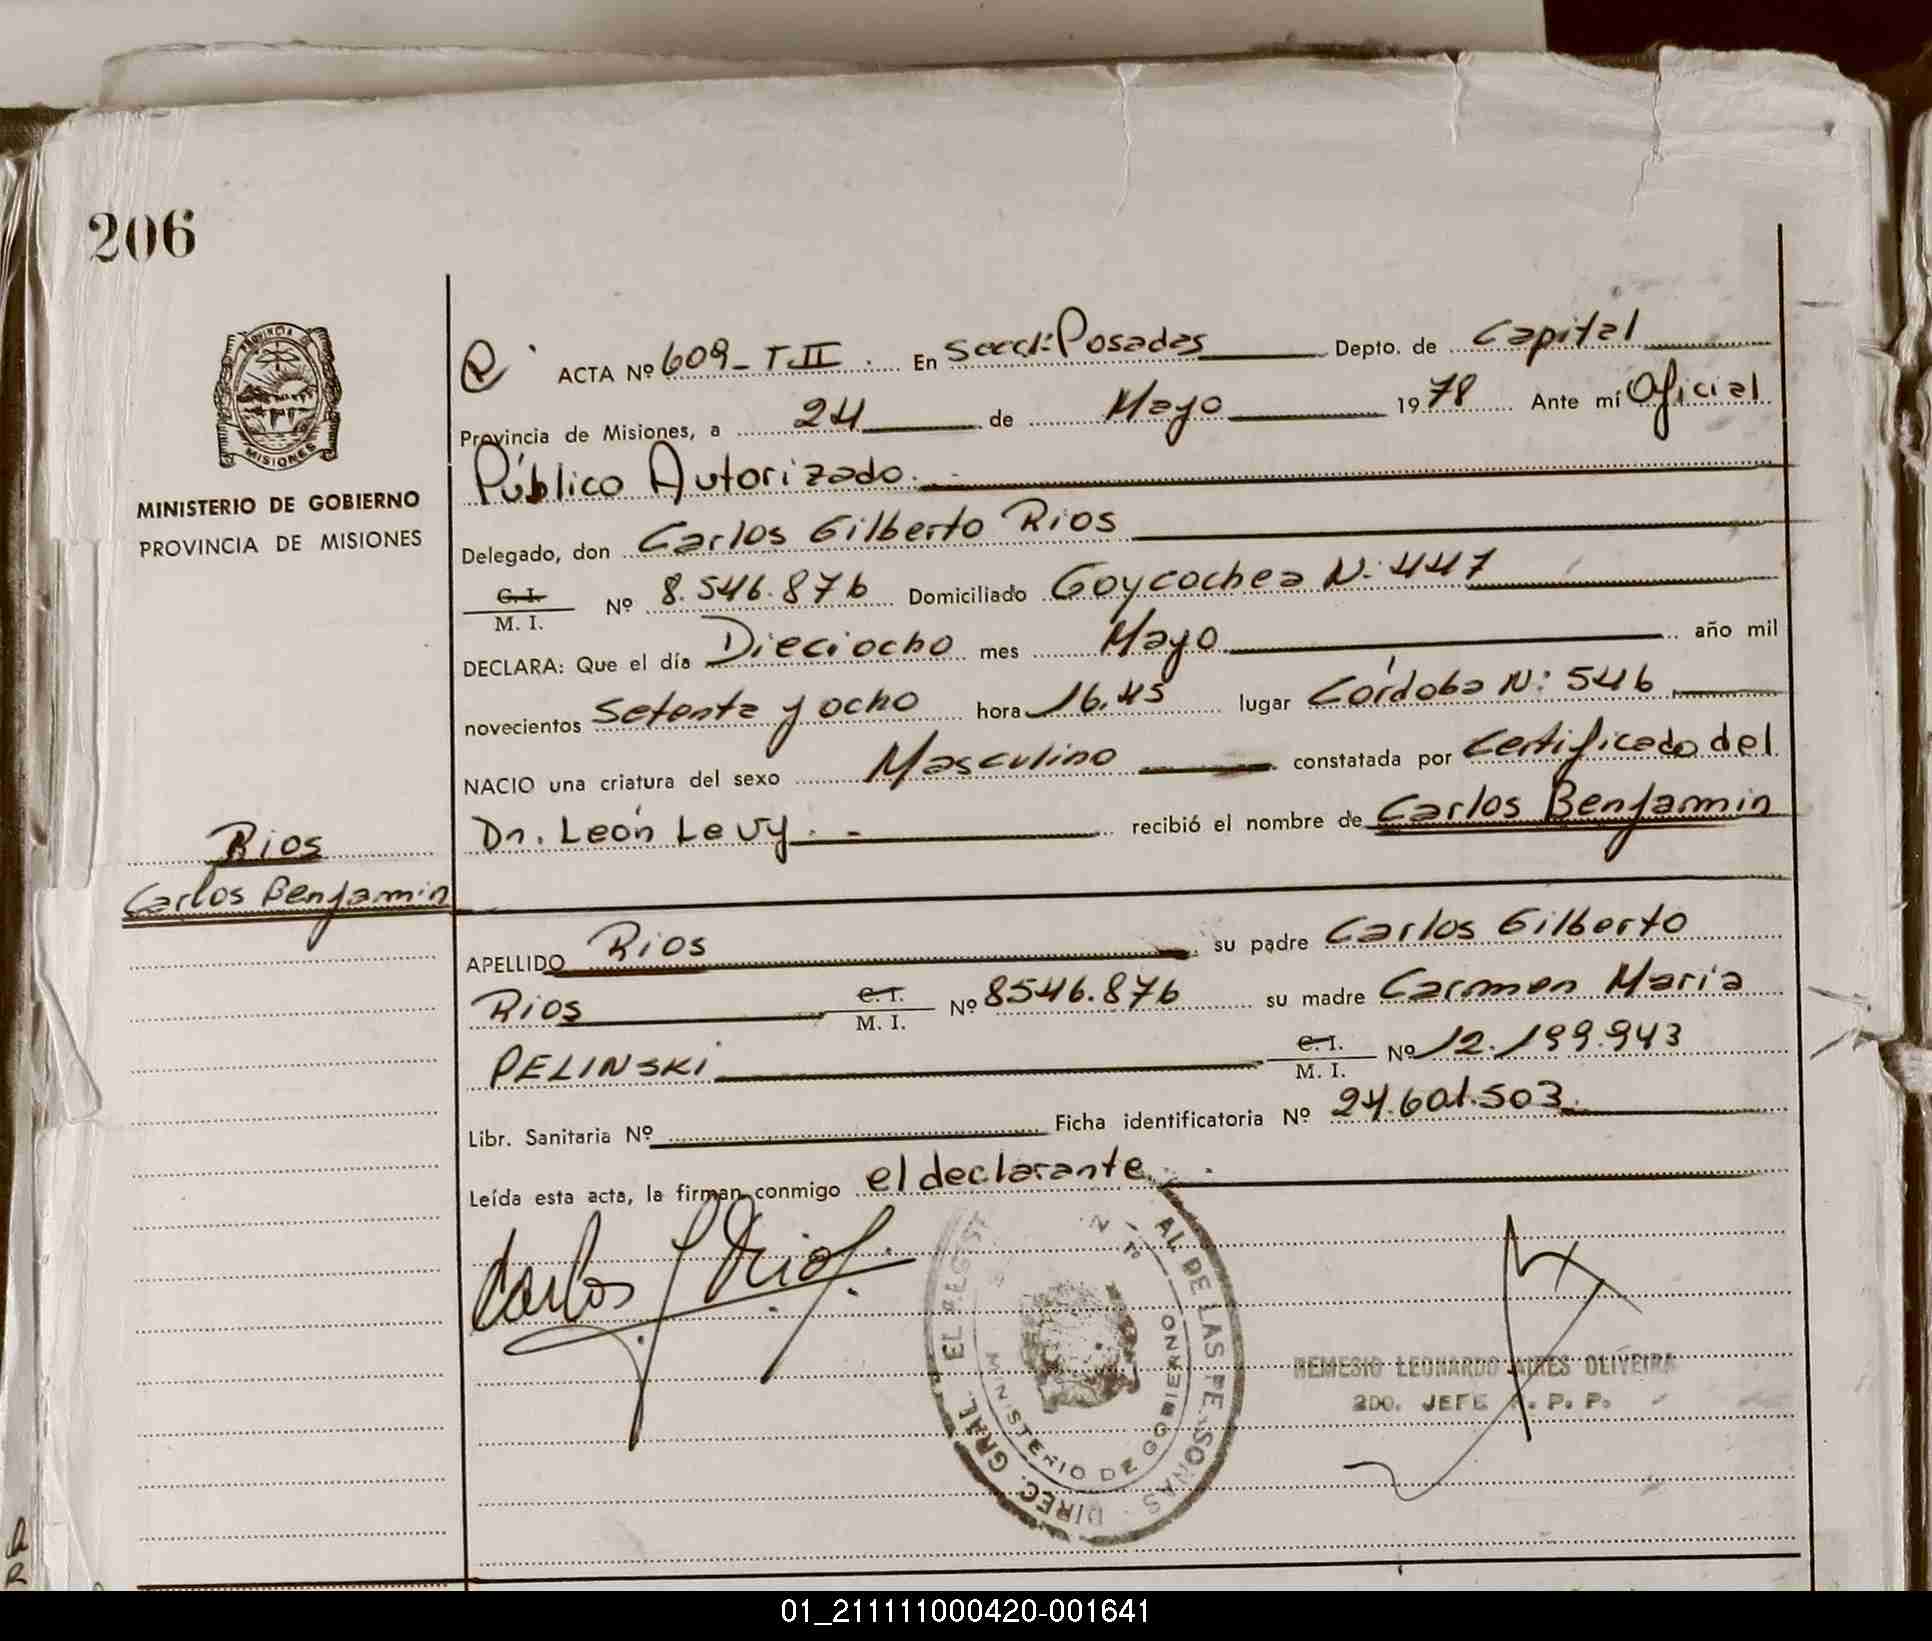 206
PROVINCIA DE
MISIONES
MINISTERIO DE GOBIERNO
PROVINCIA DE MISIONES
ACTA Nº 609_T.II. En Secc.1: Posadas Depto. de Capital
Provincia de Misiones, a 24 de Mayo 1978 Ante mí Oficial
Público Autorizado.
Delegado, don Carlos Gilberto Rios
C. I.
M. I. Nº 8.546.876 Domiciliado Goycochea N: 447
DECLARA: Que el día Dieciocho mes Mayo año mil
novecientos Setenta y ocho hora 16.45 lugar Córdoba N: 546
NACIO una criatura del sexo Masculino constatada por Certificado del
Dr. León Levy.- recibió el nombre de Carlos Benjamin
Rios
Carlos Benjamin
APELLIDO Rios su padre Carlos Gilberto
Rios C. I. M. I. Nº 8546.876 su madre Carmen Maria
PELINSKI C. I. M. I. Nº 12.199.943
Libr. Sanitaria Nº Ficha identificatoria Nº 24.601.503.
Leída esta acta, la firman conmigo el declarante.
Carlos G Rios
DIREC. GRAL. DEL REGIST AL DE LAS PERSONAS
MINISTERIO DE GOBIERNO
REMESIO LEONARDO AIRES OLIVEIRA
2DO. JEFE R. P. P.
01_211111000420-001641